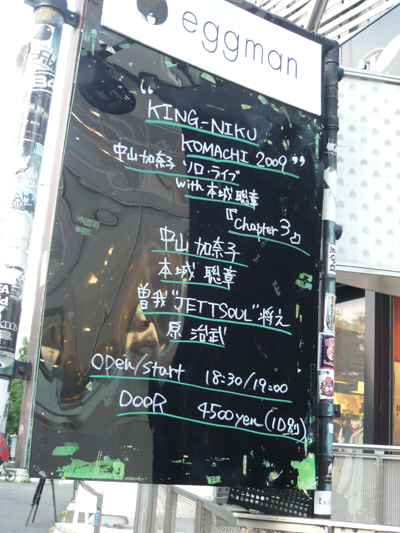 eggman
"KING-NIKU
KOMACHI 2009"
中山加奈子 ソロ・ライブ
with 本城聡章
『Chapter 3』
中山 加奈子
本城 聡章
曽我"JETTSOUL"将之
原 治武
OPEN/start 18:30/19:00
DOOR 4500yen (1D別)